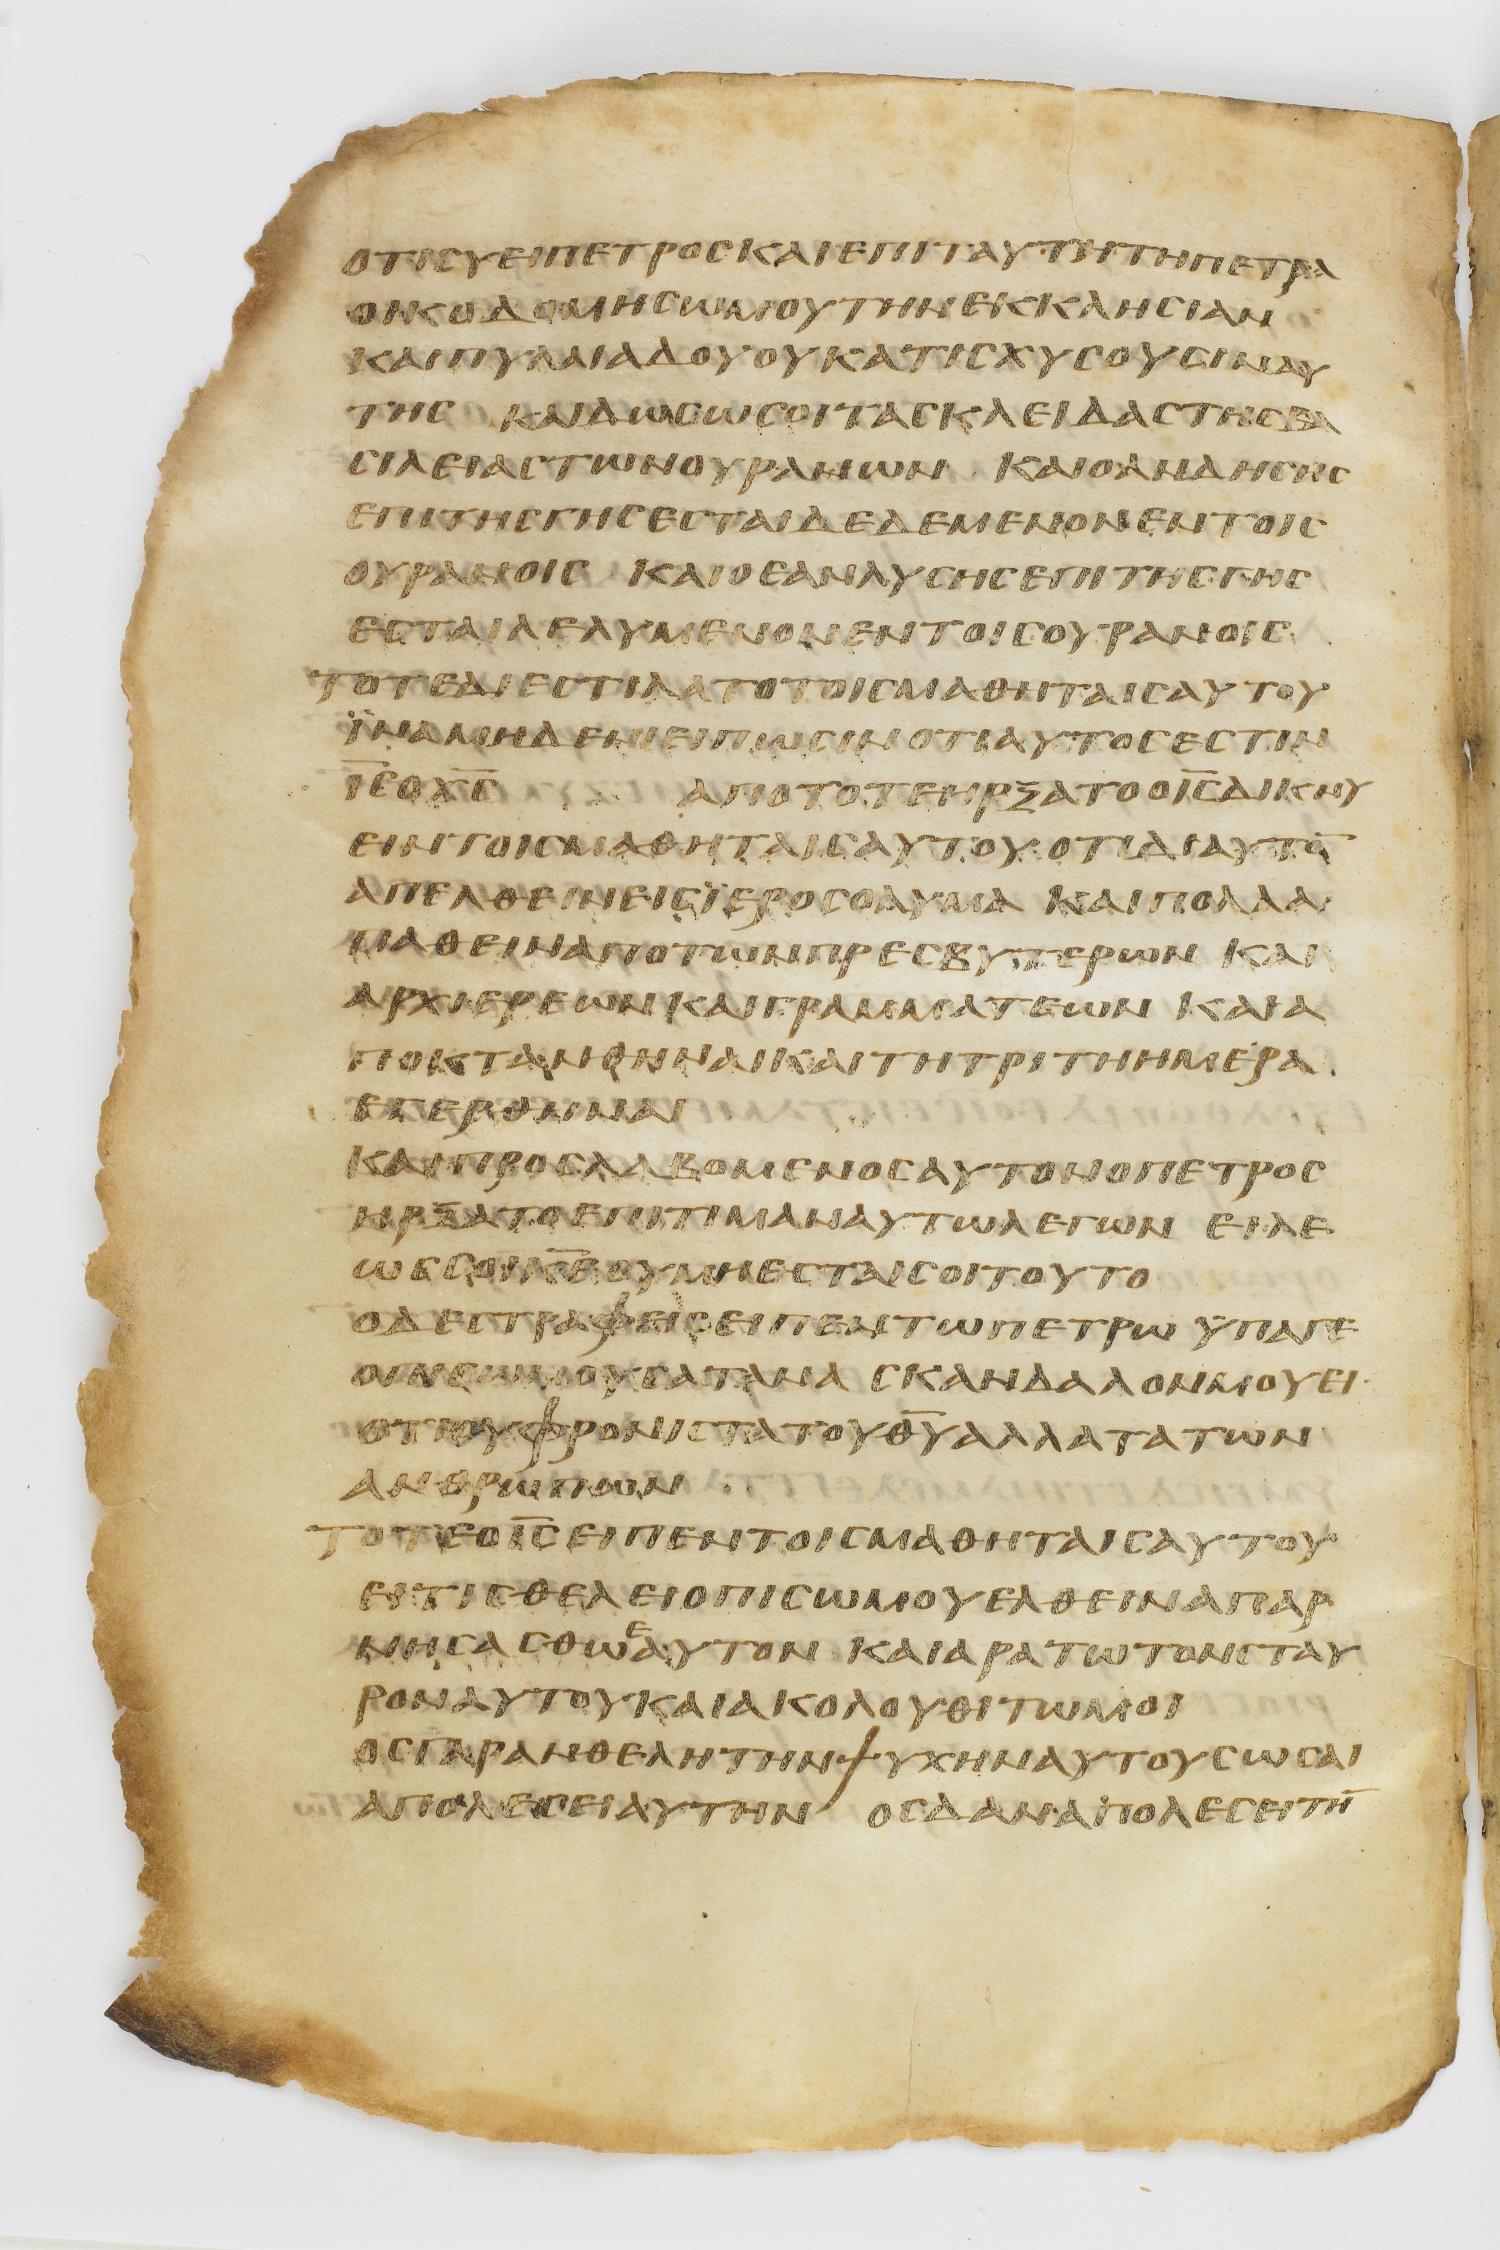 οτι συ ει πετρος και επι ταυτη τη πετρα
οικοδομησω μου την εκκλησιαν
και πυλαι αδου ου κατισχυσουσιν αυ
της και δωσω σοι τας κλειδας της βα
σιλειας των ουρανων και ο αν δησης
επι της γης εσται δεδεμενον εν τοις
ουρανοις και ο εαν λυσης επι της γης
εσται λελυμενον εν τοις ουρανοις
τοτε διεστιλατο τοις μαθηταις αυτου
ϊνα μηδενι ειπωσιν οτι αυτος εστιν
ι̅ς̅ ο χ̅ς̅ απο τοτε ηρξατο ο ι̅ς̅ δικνυ
ειν τοις μαθηταις αυτου οτι δι αυτο̅
απελθειν εις ϊεροσολυμα και πολλα
παθειν απο των πρεσβυτερων και
αρχιερεων και γραμματεων και α
ποκτανθηναι και τη τριτη ημερα
εγερθηναι
και προσλαβομενος αυτον ο πετρος
ηρξατο επιτιμαν αυτω λεγων ειλε
ως σοι κ̅ε̅ ου μη εσται σοι τουτο
ο δε στραφεις ειπεν τω πετρω ϋπαγε
οπισω μου σατανα σκανδαλον μου ει
οτι ου φρονις τα του θ̅υ̅ αλλα τα των
ανθρωπων
τοτε ο ι̅ς̅ ειπεν τοις μαθηταις αυτου
ει τις θελει οπισω μου ελθειν απαρ
νησασθω εαυτον και αρατω τον σταυ
ρον αυτου και ακολουθιτω μοι
ος γαρ αν θελη την ψυχην αυτου σωσαι
απολεσει αυτην ος δ αν απολεσει τη̅